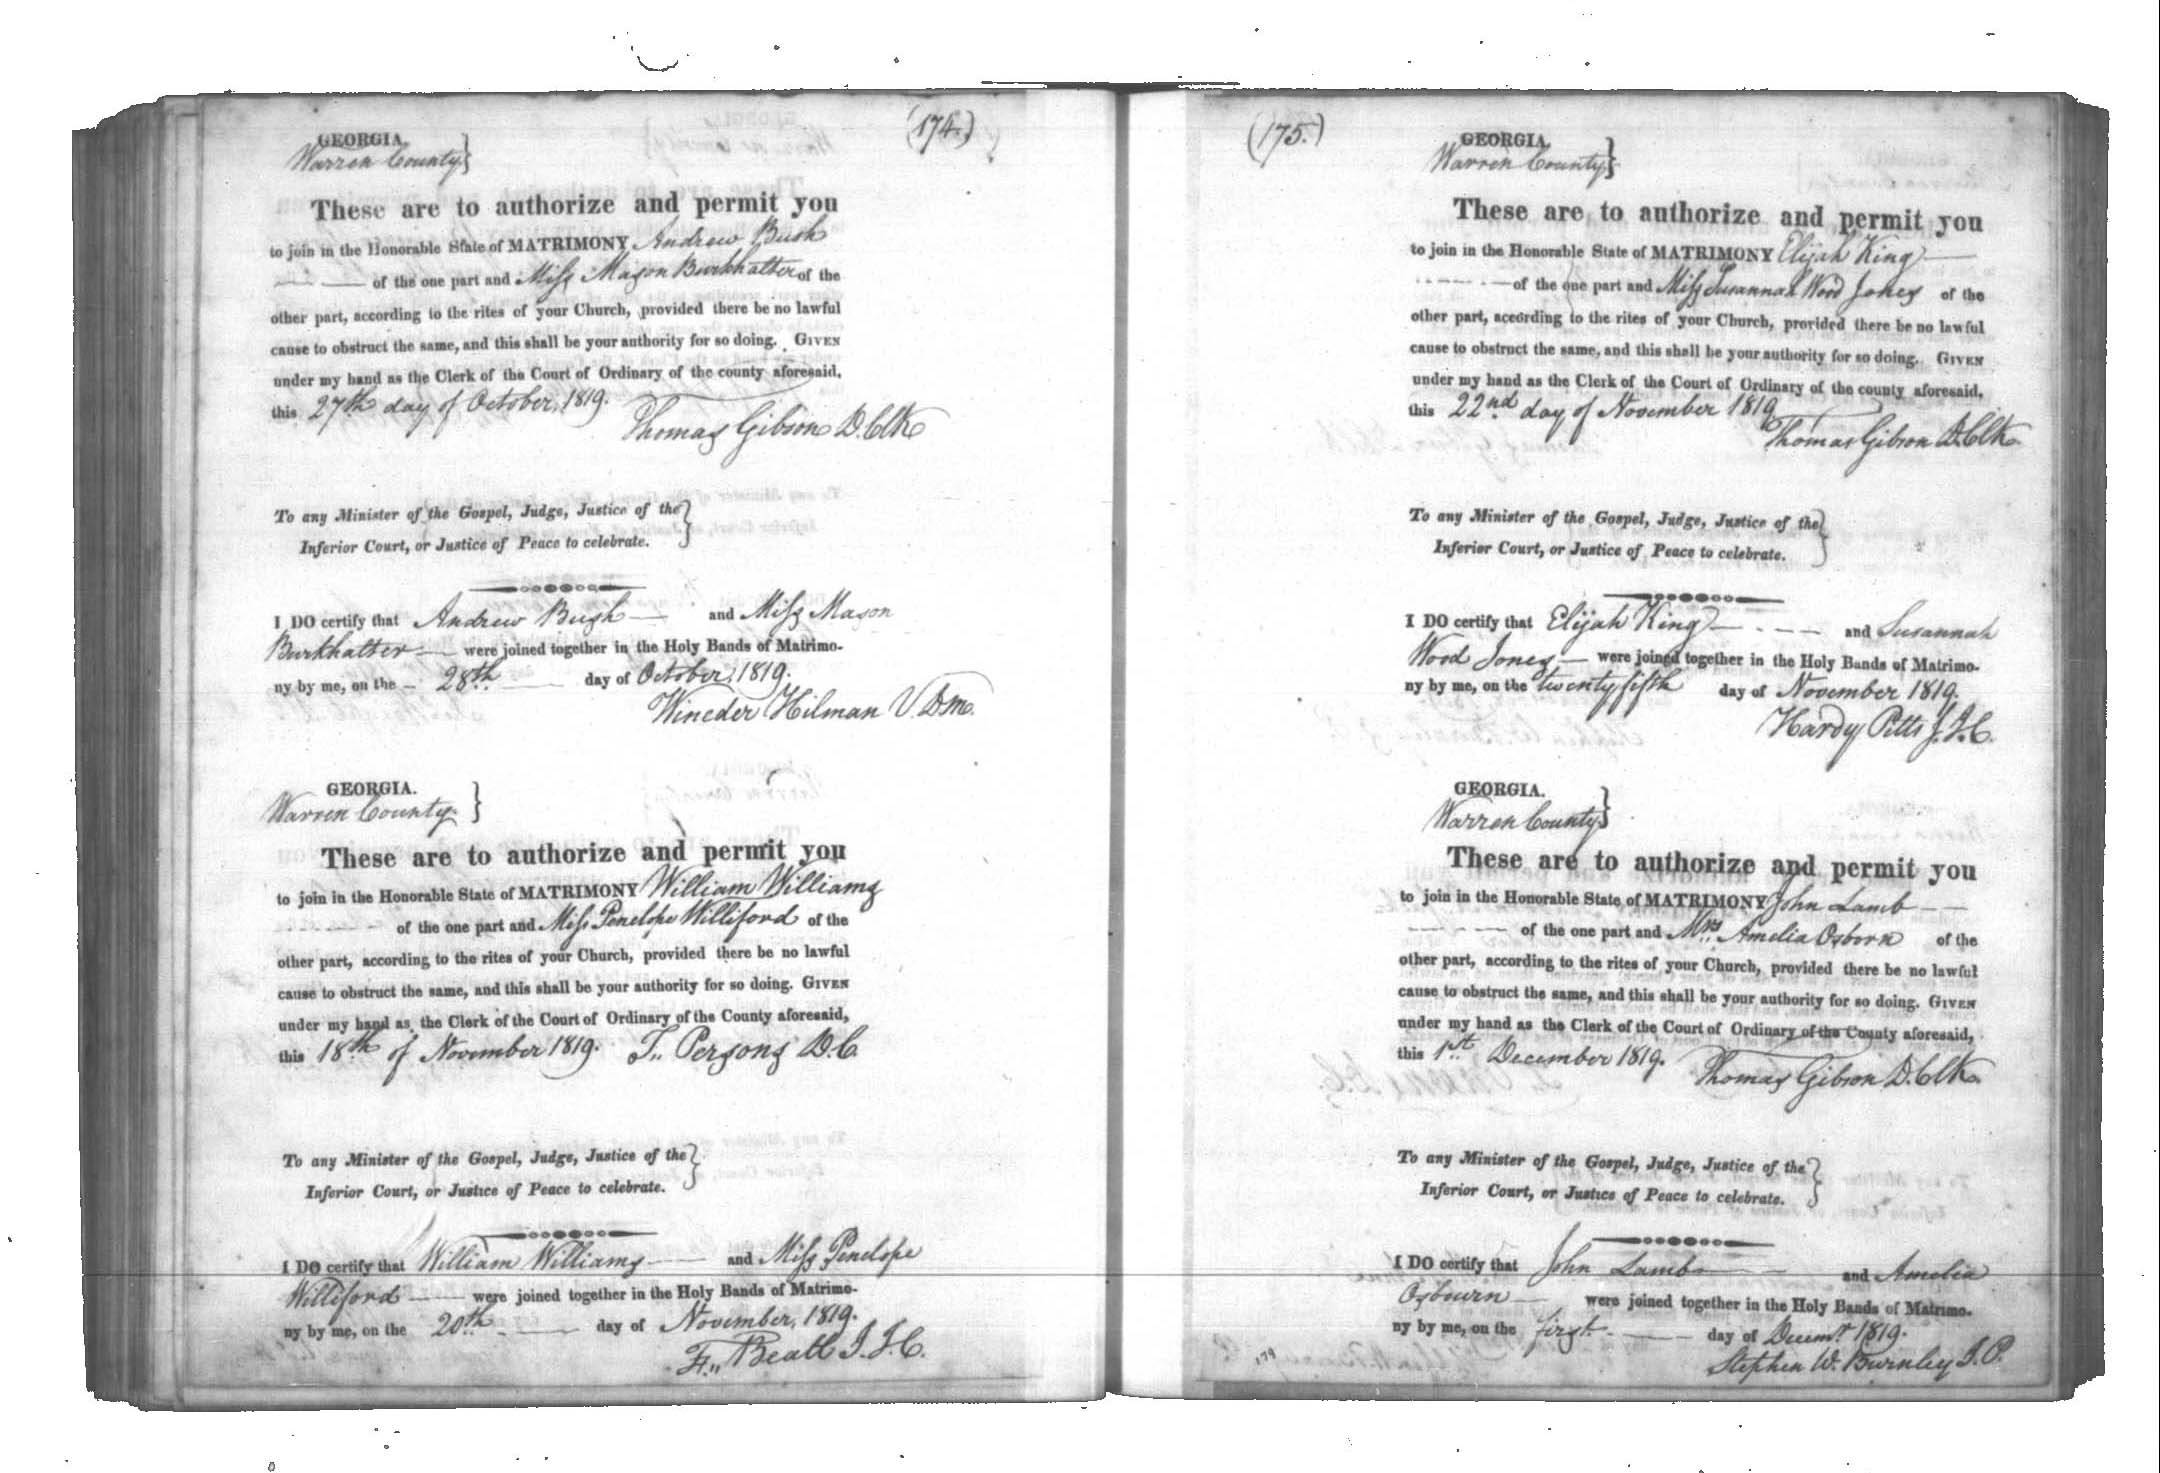 (174.)
GEORGIA.
Warren County}
These are to authorize and permit you
to join in the Honorable State of MATRIMONY Andrew Bush
of the one part and Miss Mason Burkhalter of the
other part, according to the rites of your Church, provided there be no lawful
cause to obstruct the same, and this shall be your authority for so doing. GIVEN
under my hand as the Clerk of the Court of Ordinary of the county aforesaid,
this 27th day of October, 1819.
Thomas Gibson D. Clk
To any Minister of the Gospel, Judge, Justice of the}
Inferior Court, or Justice of Peace to celebrate.
I DO certify that Andrew Bush and Miss Mason
Burkhalter were joined together in the Holy Bands of Matrimo-
ny by me, on the 28th day of October, 1819.
Wineder Hilman V. D. M.
GEORGIA.
Warren County.}
These are to authorize and permit you
to join in the Honorable State of MATRIMONY William Williams
of the one part and Miss Penelope Williford of the
other part, according to the rites of your Church, provided there be no lawful
cause to obstruct the same, and this shall be your authority for so doing. GIVEN
under my hand as the Clerk of the Court of Ordinary of the County aforesaid,
this 18th of November 1819. T,, Persons D. C.
To any Minister of the Gospel, Judge, Justice of the}
Inferior Court, or Justice of Peace to celebrate.
I DO certify that William Williams and Miss Penelope
Williford were joined together in the Holy Bands of Matrimo-
ny by me, on the 20th day of November, 1819.
F,, Beall J. I. C.
(175.)
GEORGIA.
Warren County}
These are to authorize and permit you
to join in the Honorable State of MATRIMONY Elijah King
of the one part and Miss Susannah Wood Jones of the
other part, according to the rites of your Church, provided there be no lawful
cause to obstruct the same, and this shall be your authority for so doing. GIVEN
under my hand as the Clerk of the Court of Ordinary of the county aforesaid,
this 22nd day of November 1819
Thomas Gibson D. Clk
To any Minister of the Gospel, Judge, Justice of the}
Inferior Court, or Justice of Peace to celebrate.
I DO certify that Elijah King and Susannah
Wood Jones were joined together in the Holy Bands of Matrimo-
ny by me, on the twenty fifth day of November 1819.
Hardy Pitts J. I. C.
GEORGIA.
Warren County}
These are to authorize and permit you
to join in the Honorable State of MATRIMONY John Lamb
of the one part and Mrs. Amelia Osborn of the
other part, according to the rites of your Church, provided there be no lawful
cause to obstruct the same, and this shall be your authority for so doing. GIVEN
under my hand as the Clerk of the Court of Ordinary of the County aforesaid,
this 1st December 1819.
Thomas Gibson D. Clk.
To any Minister of the Gospel, Judge, Justice of the}
Inferior Court, or Justice of Peace to celebrate.
I DO certify that John Lamb and Amelia
Osbourn were joined together in the Holy Bands of Matrimo-
ny by me, on the first day of Decemr. 1819.
Stephen W. Burnley J. P.